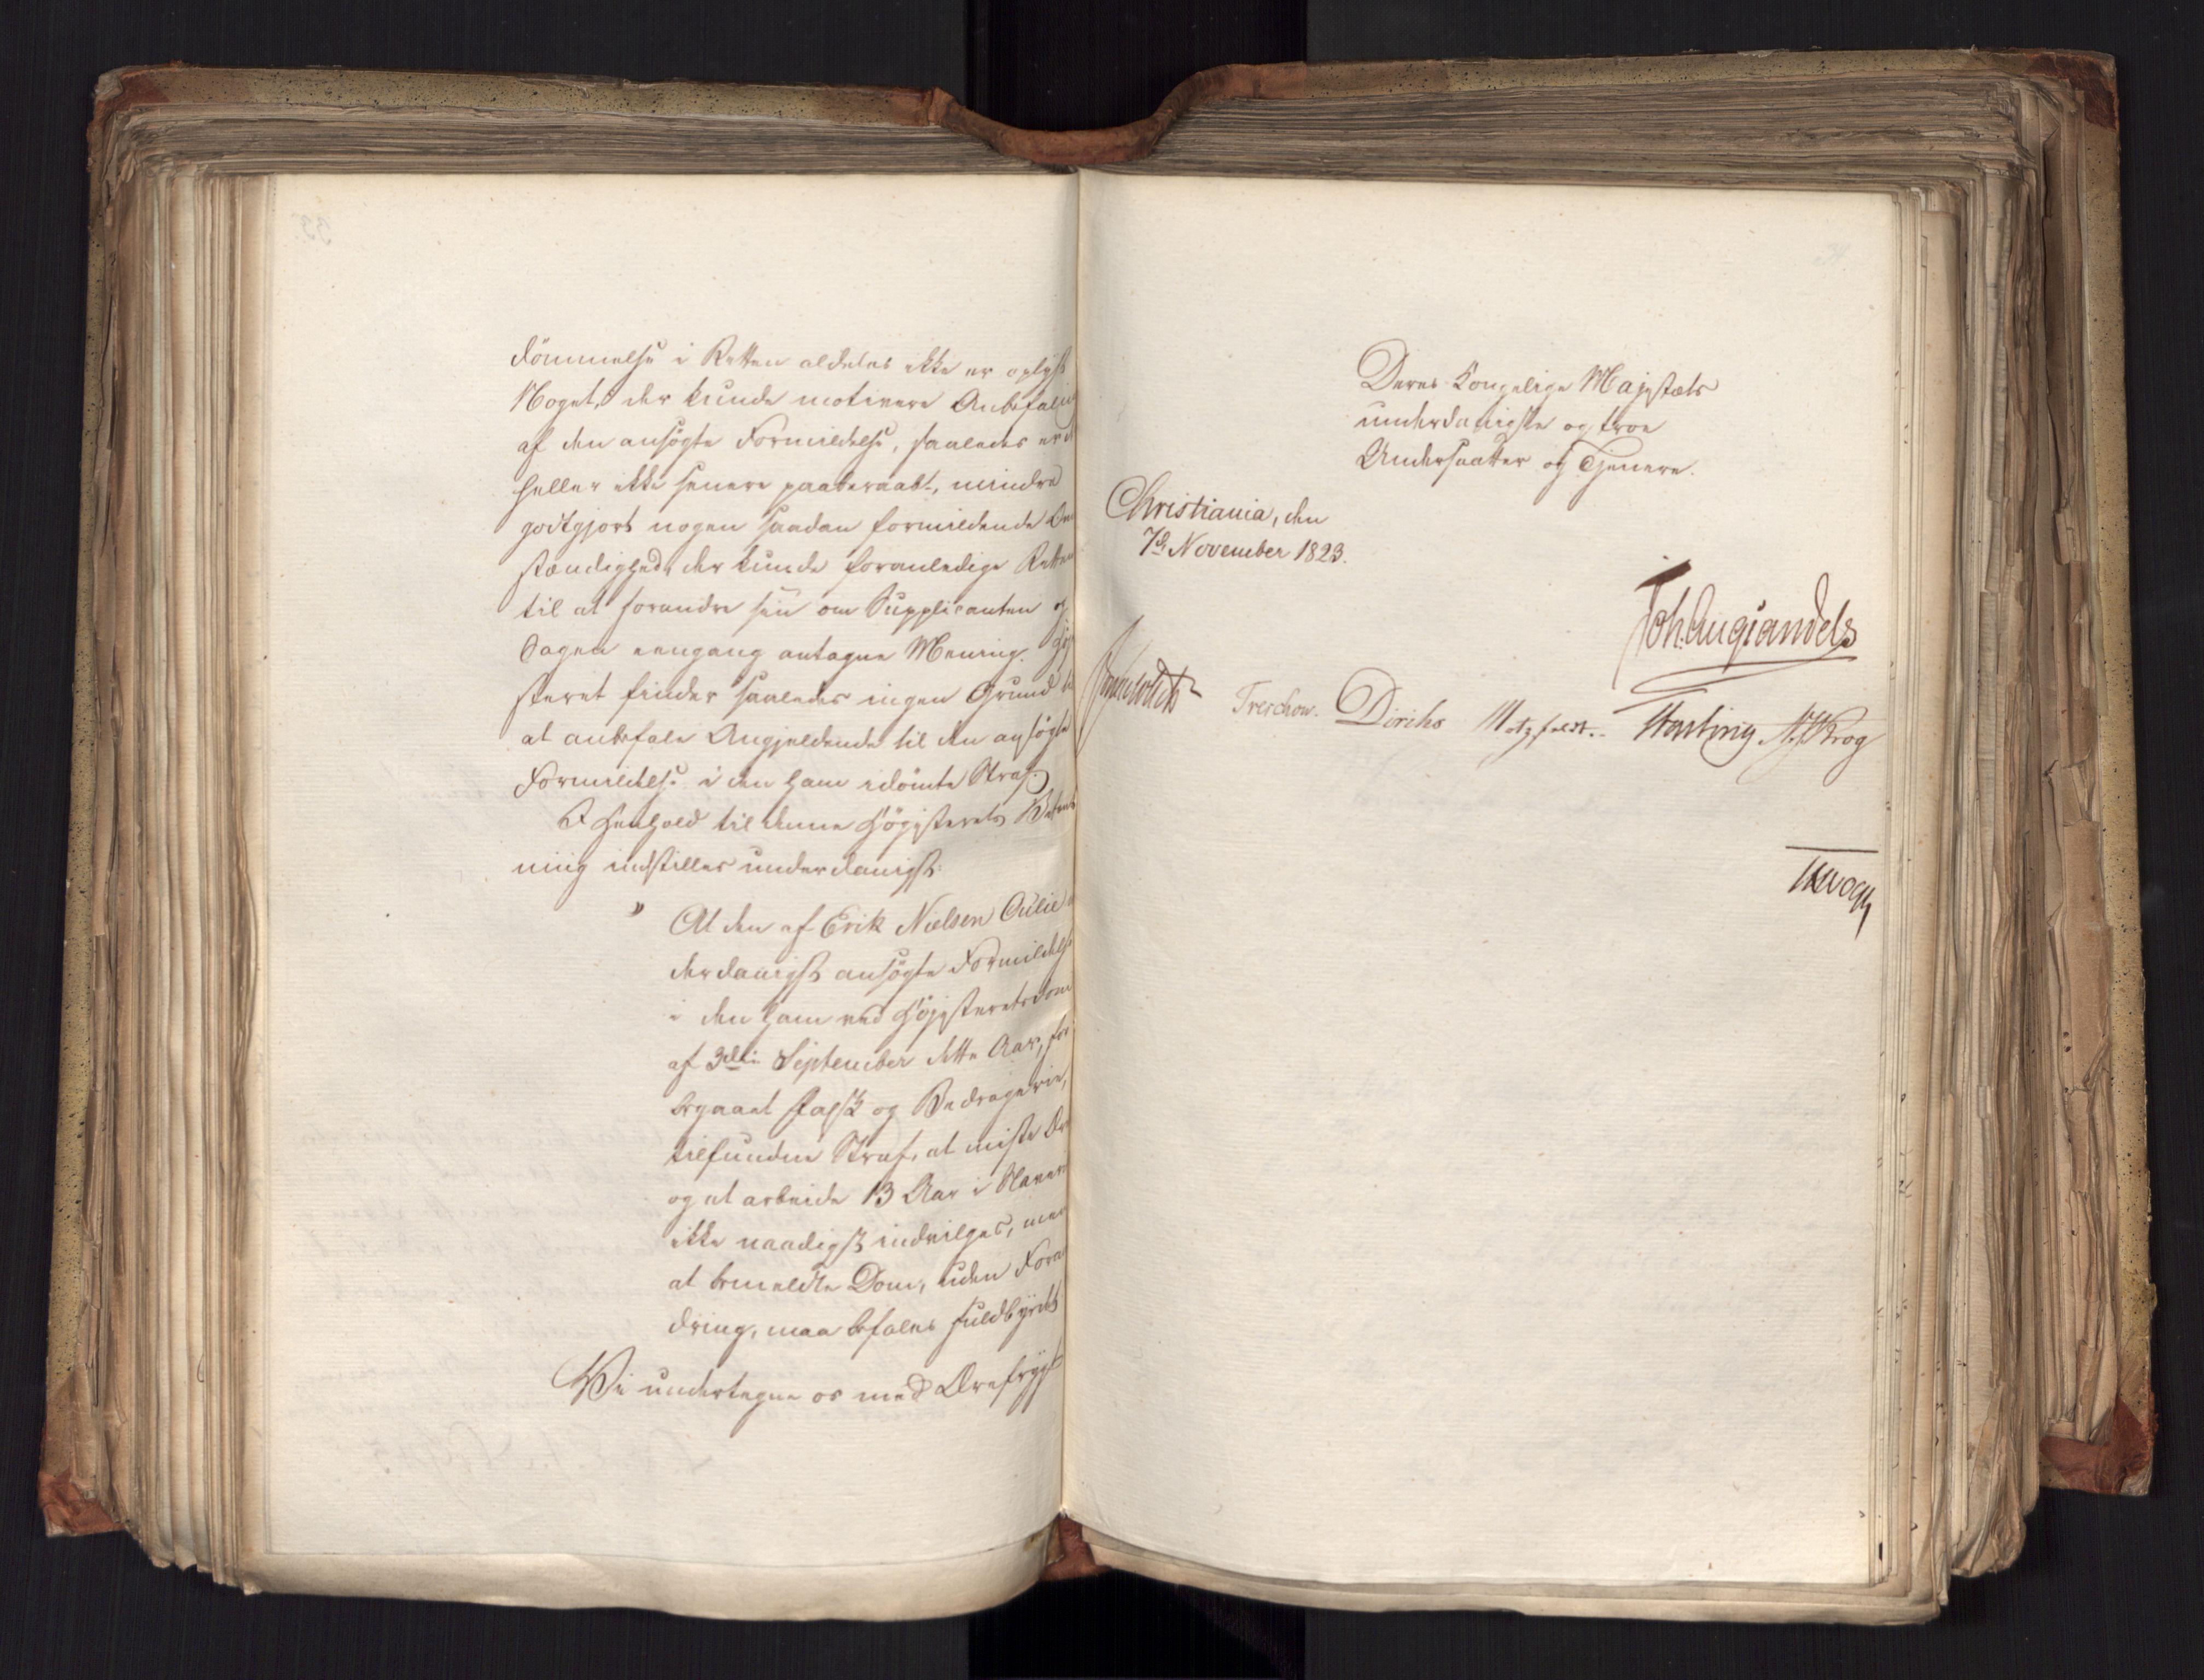 dömmelse i Retten aldeles ikke er oplyst
Noget, der kunde motivere Anbefaling
af den ansøgte Formildelse, saaledes er d
heller ikke senere paaberaabt, mindre
godtgjort nogen saadan formildende Om
stændighed, der kunde foranledige Retten
til at forandre sin om Supplicanten og
Sagen eengang antagne Mening. Höj
steret finder saaledes ingen Grund til
at anbefale Angjeldende til den ansøgte
Formildelse i den ham idömte Straf.
I Henhold til denne Höjesterets Betænk
ning indstilles underdanigst:
" At den af Erik Nielsen Aulie
derdanigst ansøgte Formildelse
i den ham ved Höjesteretsdom
af 3die September dette Aar, for
begaaet Falsk og Bedragerie,
tilfundne Straf, at miste Ære
og at arbeide 13 Aar i Slaveri
ikke naadigst indvilges, men
at bemeldte Dom, uden Foran
dring, maa befales fuldbyrdet
Vi undertegne os med Ærefrygt
33.
34
Deres Kongelige Majestæts
underdanigste og troe
Undersaatter og Tjenere.
Christiania, den
7de November 1823.
Joh. Aug. Sandels
Sommerhielm
Treschow. Diriks Motzfeldt. Fasting N. Krog
Hwogh